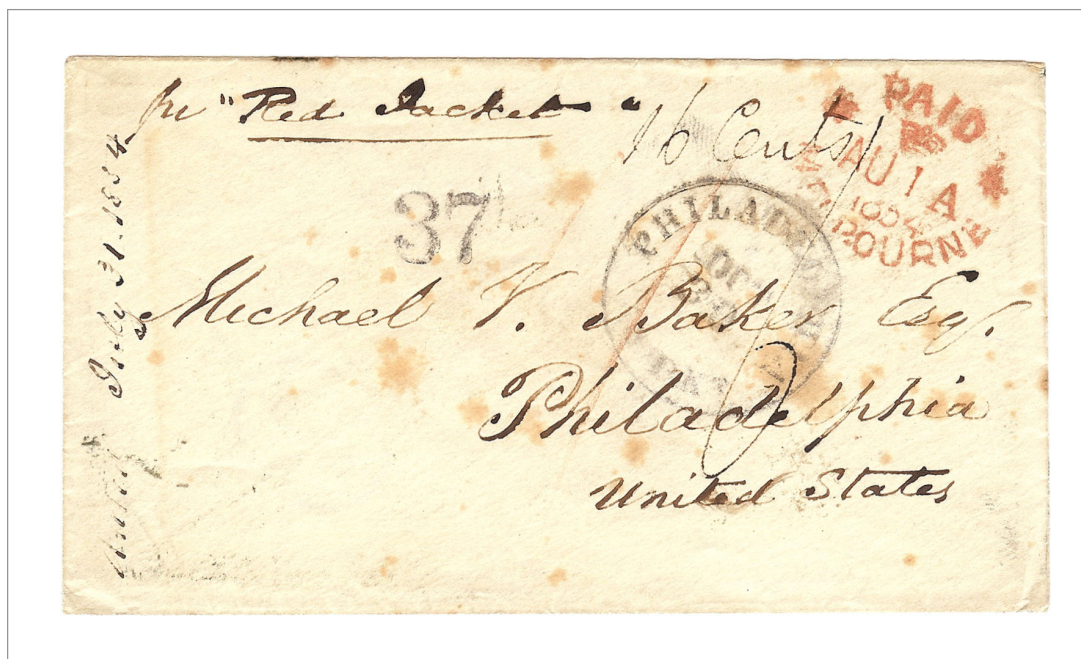 per "Red Jacket"
16 Cents
PAID
AU 1 A
1854
MELBOURNE
37
PHILADELPHIA
Michael V. Baker Esq.
Philadelphia
United States
July 31. 1854